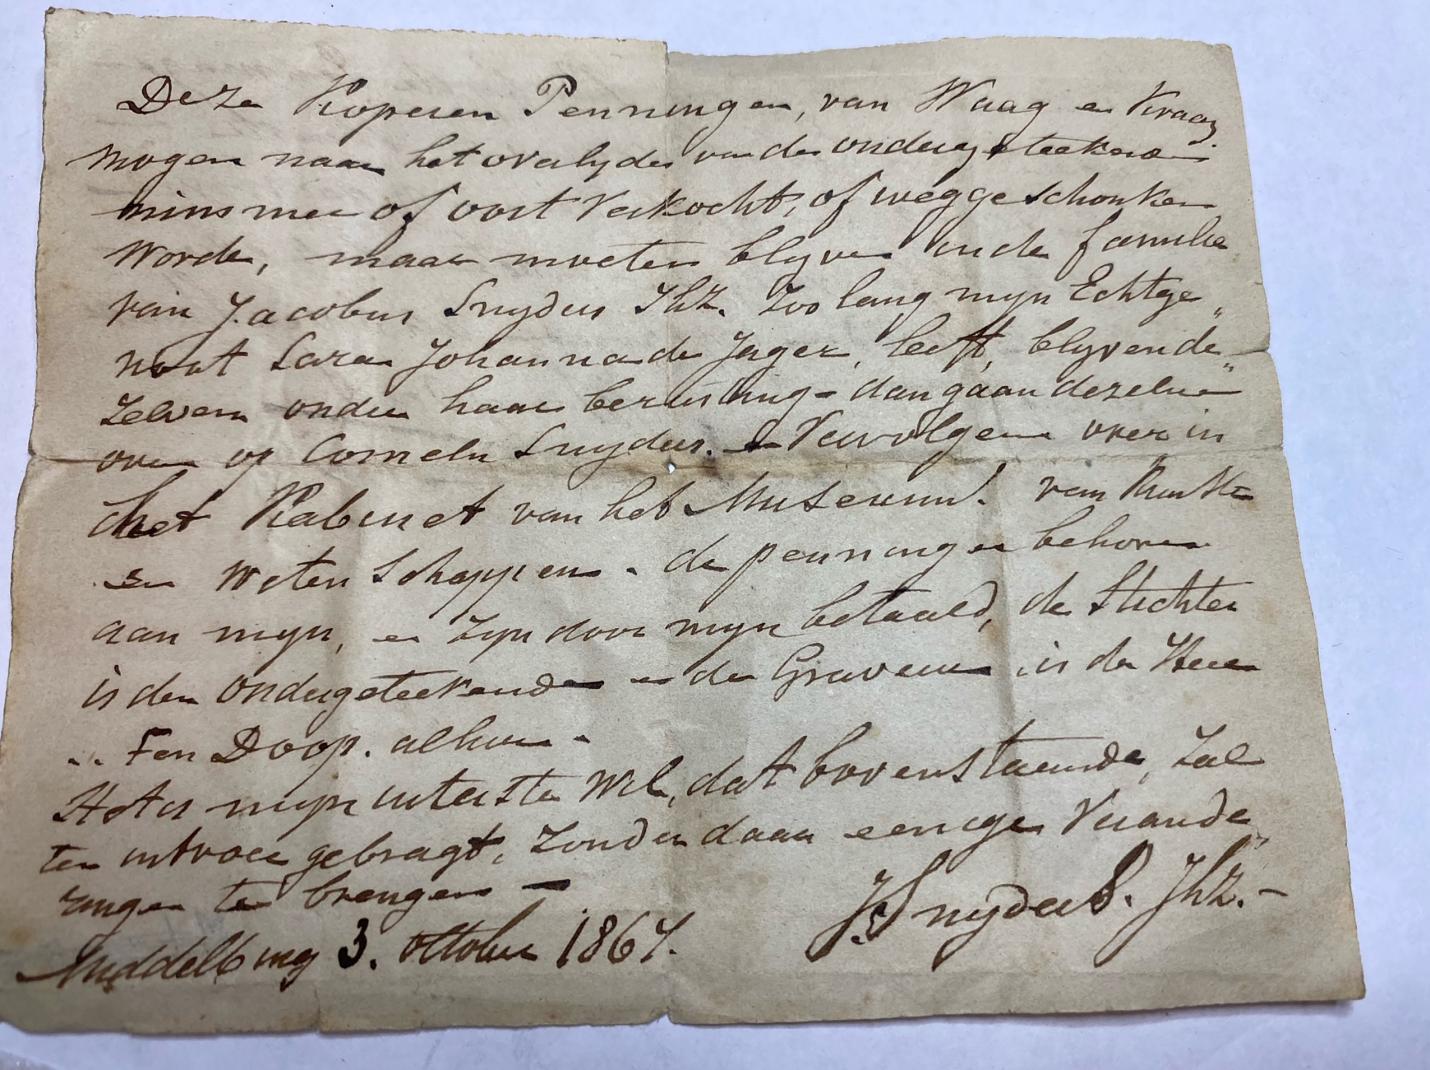 Deze Koperen Penningen, van Waag en Kraan
mogen naar het overlyden van den ondergeteekende
nimmer of ooit verkocht, of weggeschonken
worden, maar moeten blyven in de familie
van Jacobus Snyders Jhz. Zoo lang myn Echtge„
noot Sara Johanna de Jager, leeft, blyven de„
zelven onder haar berusting - dan gaan dezelve
over op Cornelis Snyders. - Vervolgens over in
het Kabinet van het Museum. van Kunsten
en Wetenschappen. de penningen behoren
aan myn, en zyn door myn betaald, de Stichter
is den ondergeteekende en de Graveur is de Heer
F en Doop. alhier -
Het is myn uiterste Wil, dat bovenstaande, Zal
ten uitvoer gebragt, Zonder daar eenige Verande„
ringen te brengen —
Middelburg 3. October 1867. J. Snyders. Jhz. -